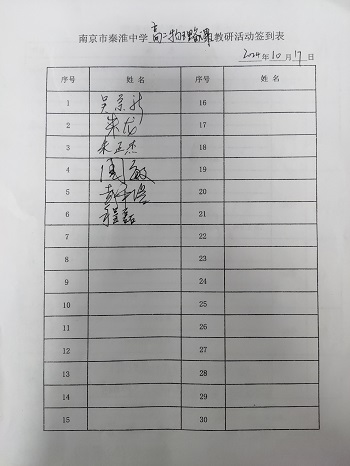 南京市秦淮中学高二物理备课教研活动签到表
2024年10月17日
序号 姓名 序号 姓名
1 吴荣彬 16
2 朱龙 17
3 朱正杰 18
4 周敏 19
5 20
6 程喆 21
7 22
8 23
9 24
10 25
11 26
12 27
13 28
14 29
15 30